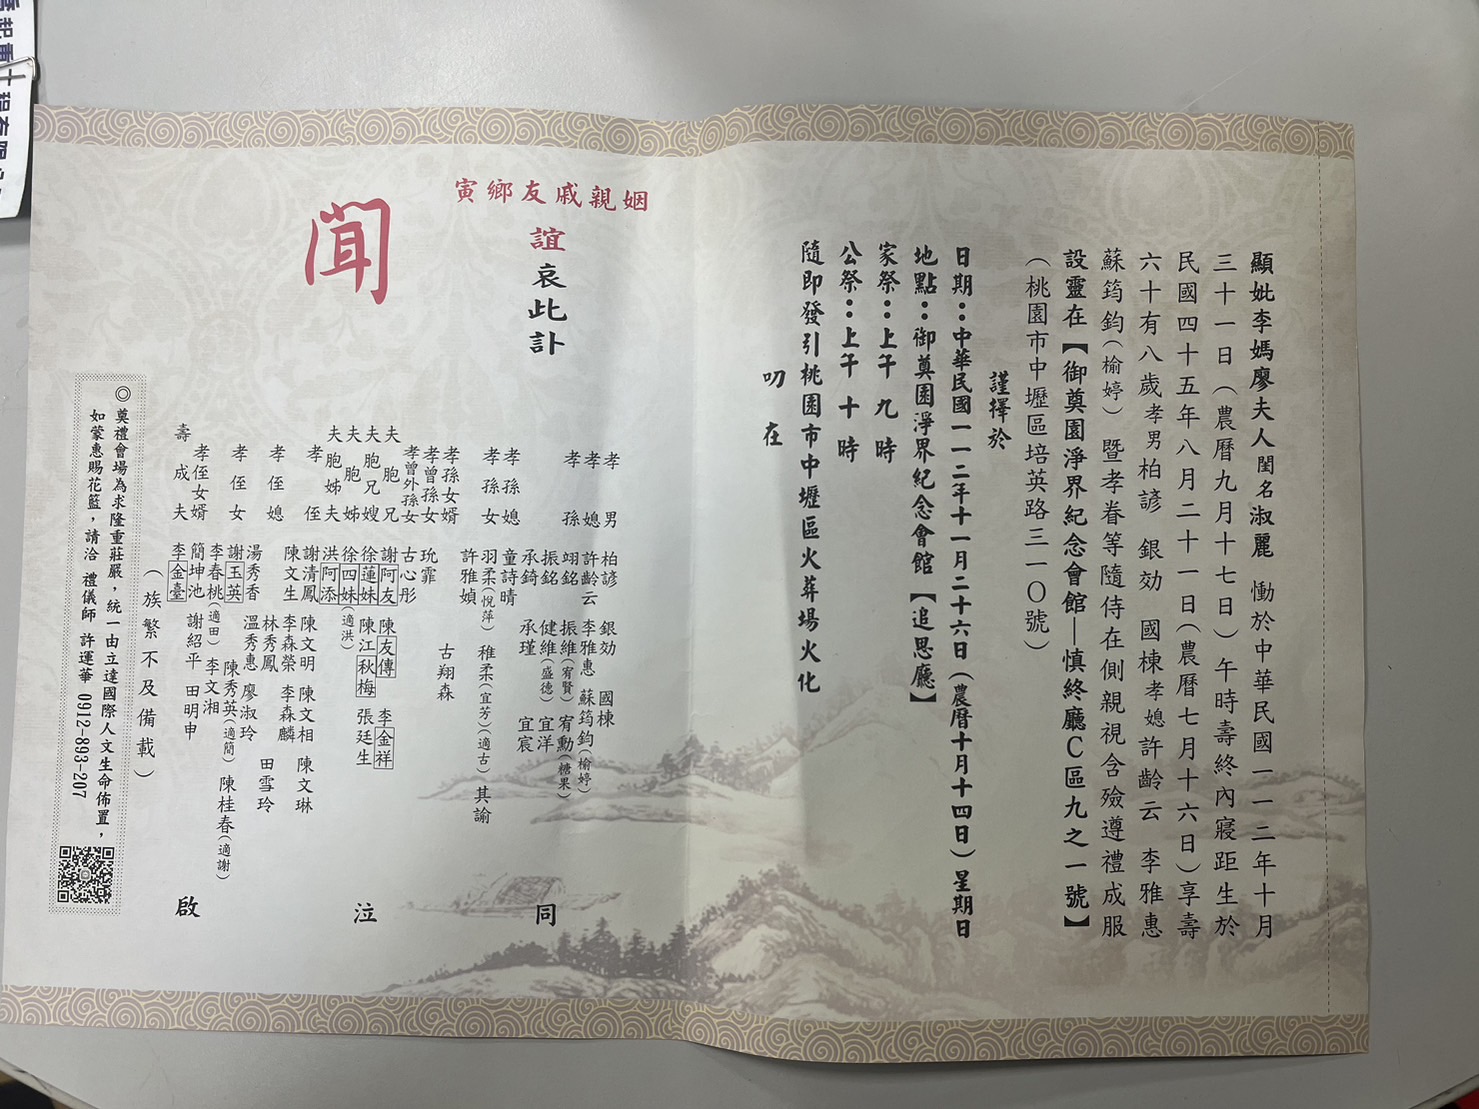 顯妣李媽廖夫人閨名淑麗 慟於中華民國一一二年十月
三十一日（農曆九月十七日）午時壽終內寢距生於
民國四十五年八月二十一日（農曆七月十六日）享壽
六十有八歲孝男柏諺 銀効 國棟孝媳許齡云 李雅惠
蘇筠鈞（榆婷）暨孝眷等隨侍在側親視含殮遵禮成服
設靈在【御奠園淨界紀念會館—慎終廳C區九之一號】
（桃園市中壢區培英路三一〇號）
謹擇於
日期：中華民國一一二年十一月二十六日（農曆十月十四日）星期日
地點：御奠園淨界紀念會館【追思廳】
家祭：上午九時
公祭：上午十時
隨即發引桃園市中壢區火葬場火化
叨在
姻親戚友鄉寅
誼哀此訃
聞
孝男 柏諺 銀効 國棟
孝媳 許齡云 李雅惠 蘇筠鈞（榆婷）
孝孫 翊銘 振維（宥賢） 宥勳（糖果）
振銘 健維（盛德） 宜洋
承錡 承瑾 宜宸
孝孫媳 童詩晴
孝孫女 羽柔（悅萍） 稚柔（宜芳）（適古） 其諭
許雅媜
孝孫女婿 古翔森
孝曾孫女 玧霏
孝曾外孫女 古心彤
夫胞兄 謝阿友 陳友傳 李金祥
夫胞兄嫂 徐蓮妹 陳江秋梅 張廷生
夫胞姊 徐四妹（適洪）
夫胞姊夫 洪阿添
孝侄 謝清鳳 陳文明 陳文相 陳文琳
陳文生 李森榮 李森麟
孝侄媳 林秀鳳 田雪玲
湯秀香 溫秀惠 廖淑玲
孝侄女 謝玉英 陳秀英（適簡） 陳桂春（適謝）
李春桃（適田） 李文湘
孝侄女婿 簡坤池 謝紹平 田明申
壽成夫 李金臺
（族繁不及備載）
同
泣
啟
◎奠禮會場為求隆重莊嚴，統一由立達國際人文生命佈置，
如蒙惠賜花籃，請洽 禮儀師 許運華 0912-893-207